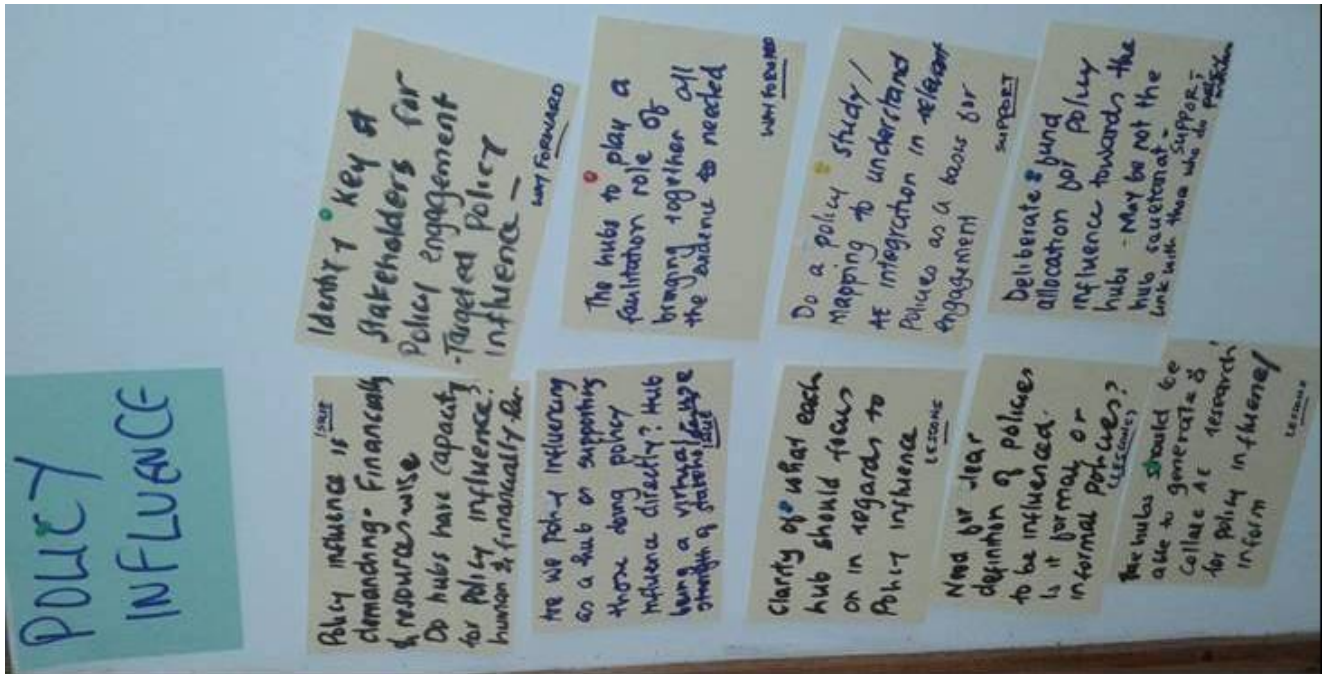 POLICY
INFLUENCE
ISSUE
Policy influence is
demanding - Financially
& resources wise
Do hubs have capacity
for Policy influence?
human & financially
Are we Policy Influencing
as a hub or supporting
those doing policy
influence directly? Hub
being a virtual
strength of
ISSUE
Clarity of what each
hub should focus
on in regards to
Policy influence
LESSONS
Need for clear
definition of policies
to be influenced.
Is it formal or
informal policies?
LESSONS
The hubs should be
able to generate &
Collate AE research
for policy influence/
inform
LESSONS
Identify Key
Stakeholders for
Policy engagement
-Targeted Policy
influence
WAY FORWARD
The hubs to play a
facilitation role of
bringing together all
the evidence needed
WAY FORWARD
Do a policy study/
Mapping to understand
AE integration in relevant
Policies as a basis for
engagement
SUPPORT
Deliberate fund
allocation for policy
influence towards the
hubs - May be not the
hub secretariat -
Link with those who do
SUPPORT